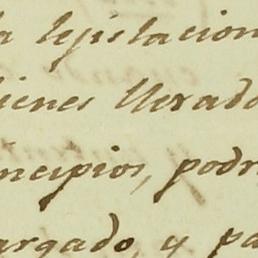 a lejislacion
bienes llevado
incipios, podr
argado, y pa